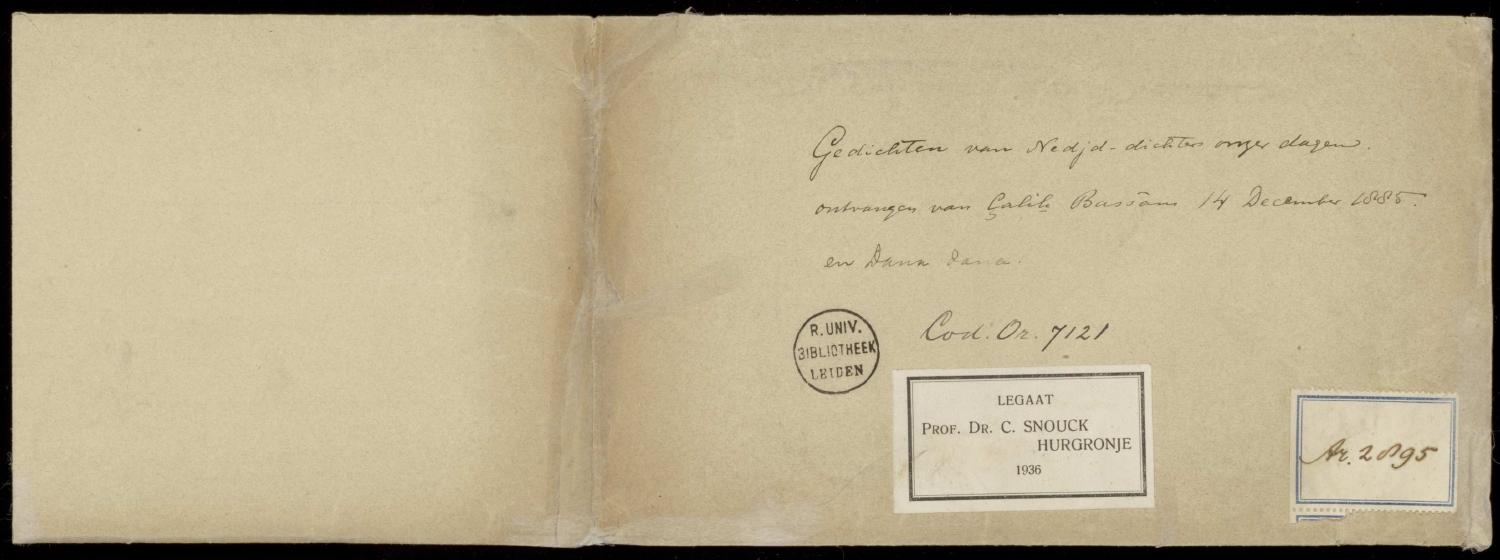 Gedichten van Nedjd-dichters onzer dagen.
ontvangen van Çaliḥ Bassâm 14 December 1885.
en Dana dana.
Cod. Or. 7121
R. UNIV.
BIBLIOTHEEK
LEIDEN
LEGAAT
PROF. DR. C. SNOUCK
HURGRONJE
1936
Ar. 2895